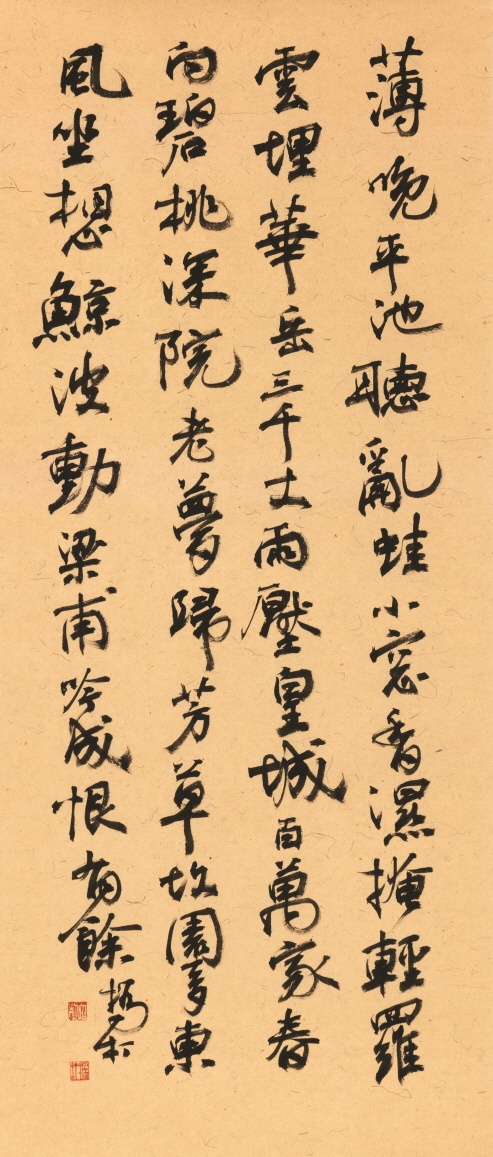 薄晚平池聽亂蛙小窓香濕掩輕羅
雲埋華岳三千丈雨壓皇城百萬家春
向碧桃深院老夢歸芳草故園多東
風坐想鯨波動梁甫吟成恨有餘